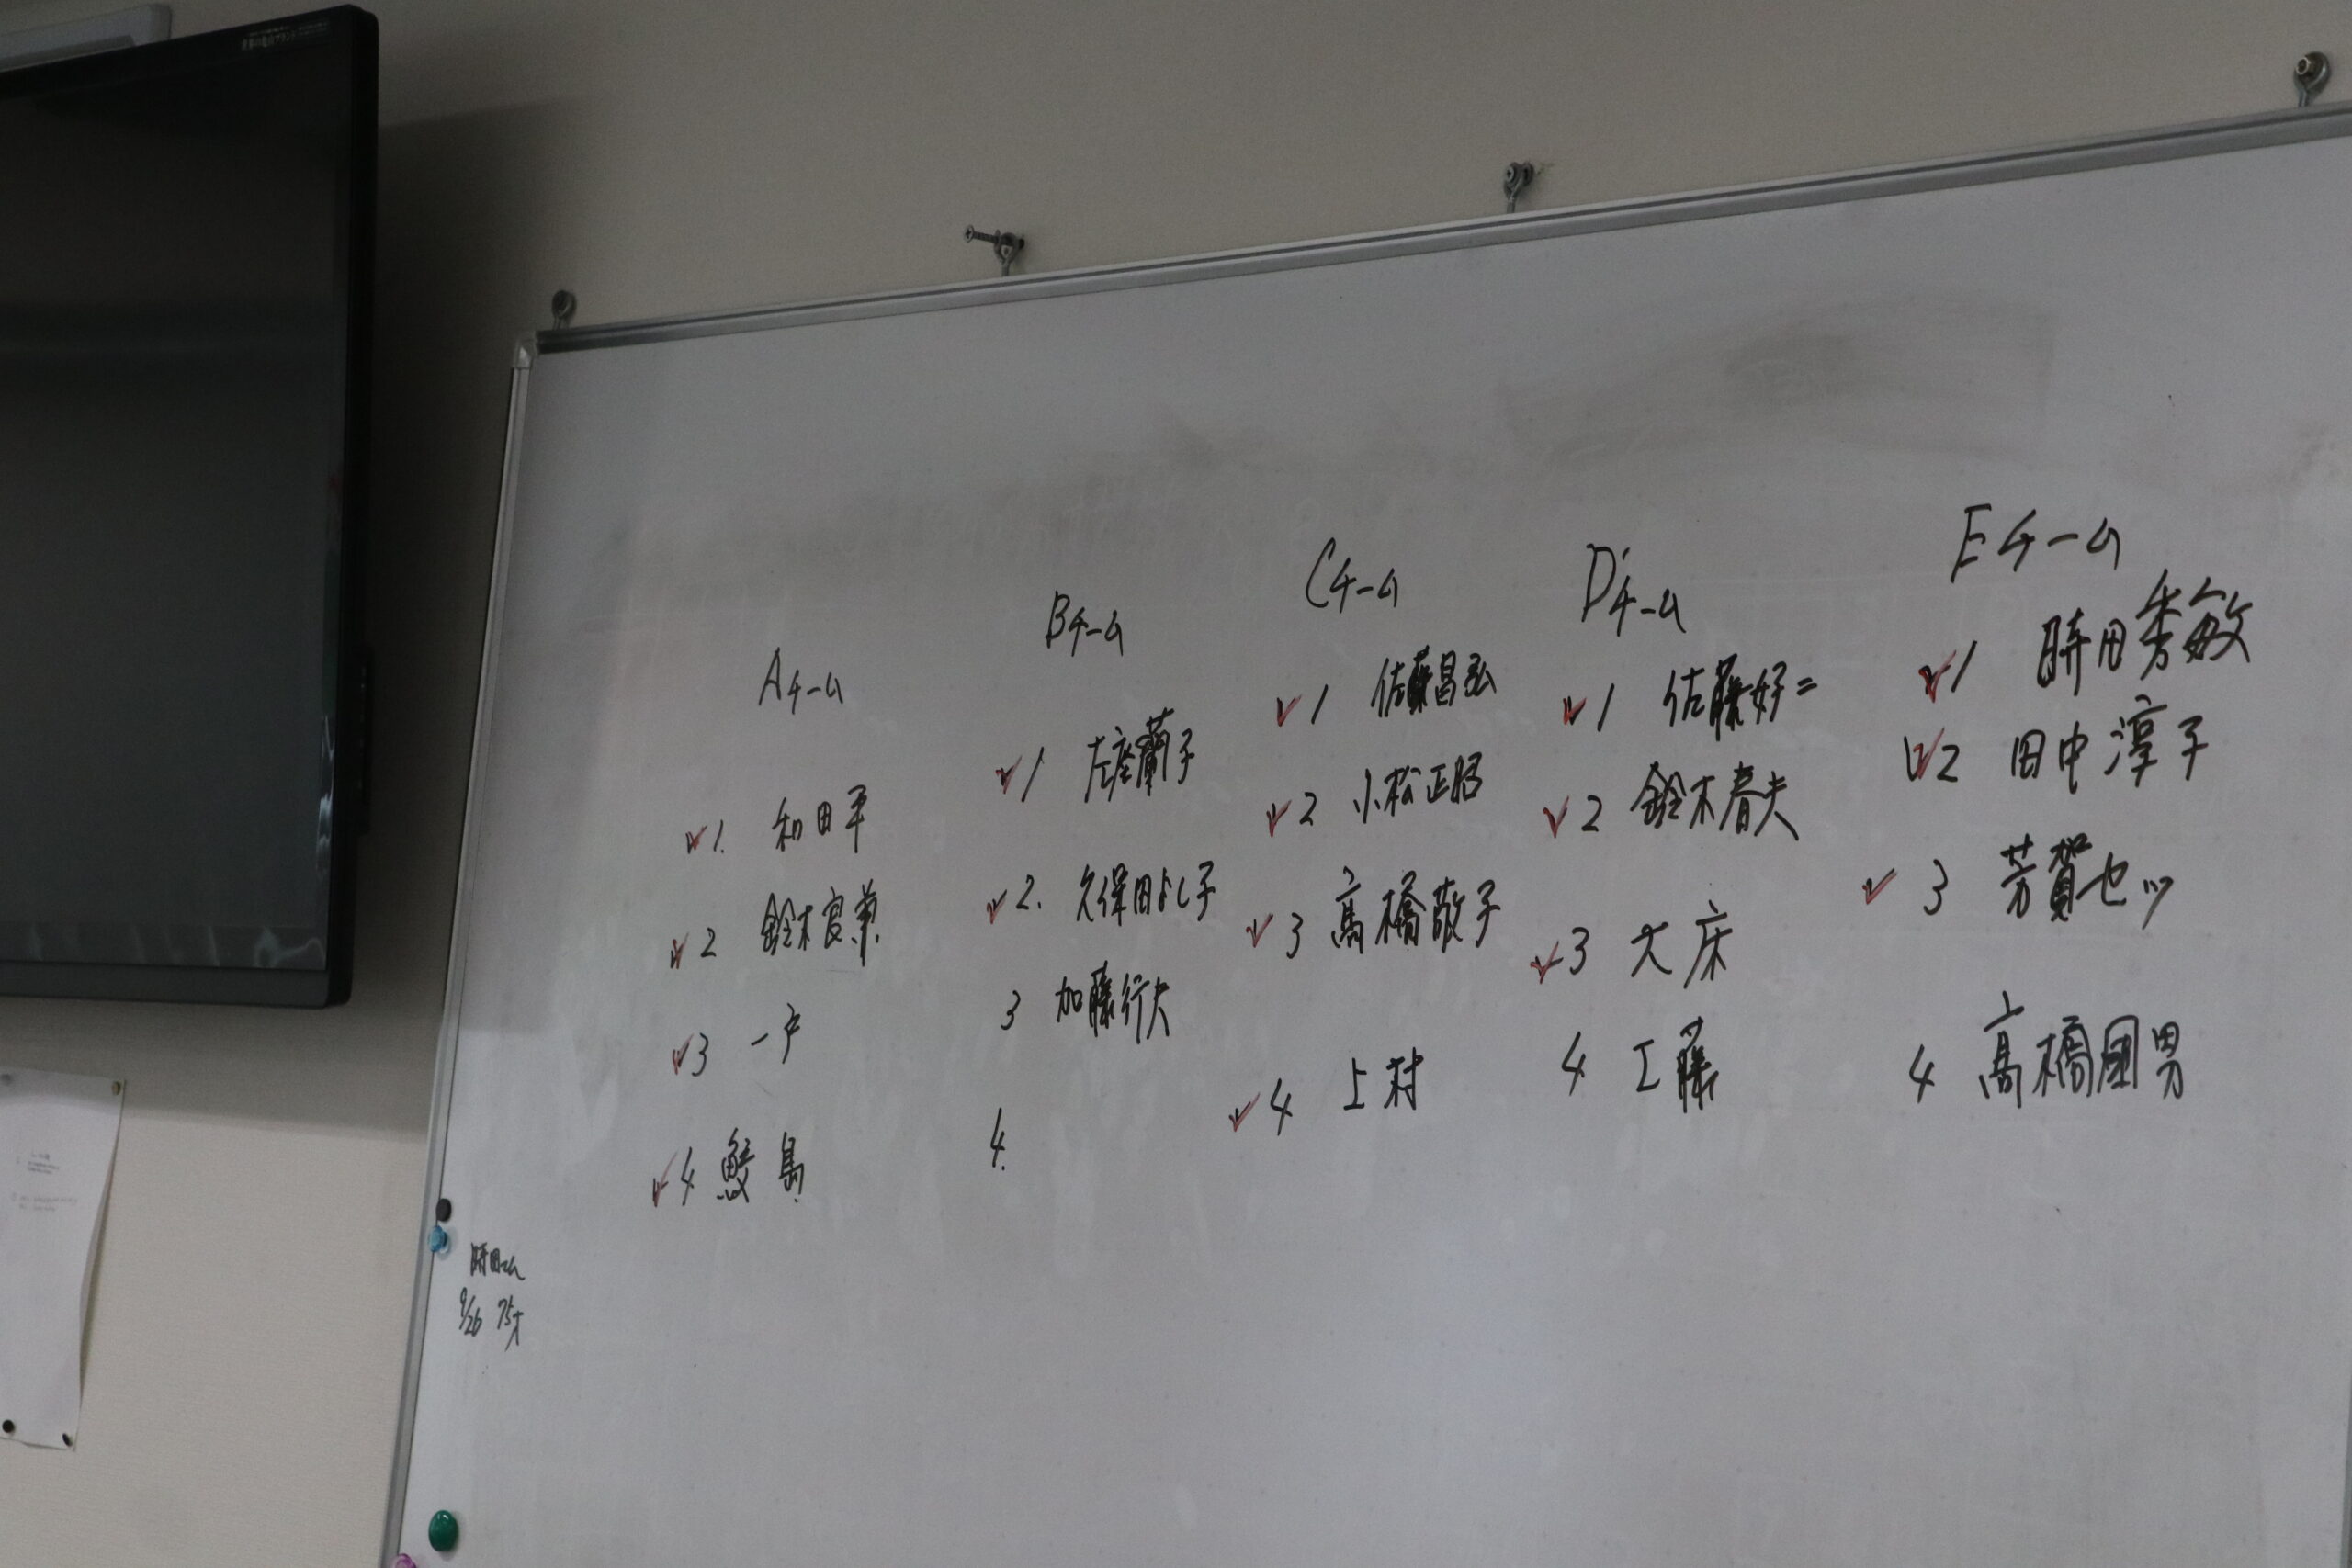 Aチーム
✓1. 和田平
✓2 鈴木良兼
✓3 一戸
✓4 鮫島
Bチーム
✓1 左座蘭子
✓2. 久保田よし子
3 加藤行夫
4.
Cチーム
✓1 佐藤昌弘
✓2 小松正昭
✓3 高橋敬子
✓4 上村
Dチーム
✓1 佐藤好二
✓2 鈴木春夫
✓3 大床
4 工藤
Eチーム
✓1 時田秀敏
✓2 田中淳子
✓3 芳賀セツ
4 高橋国男
時田さん
9/26 75才